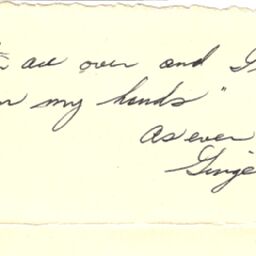 all over and I
my hands"
As ever
Ginge